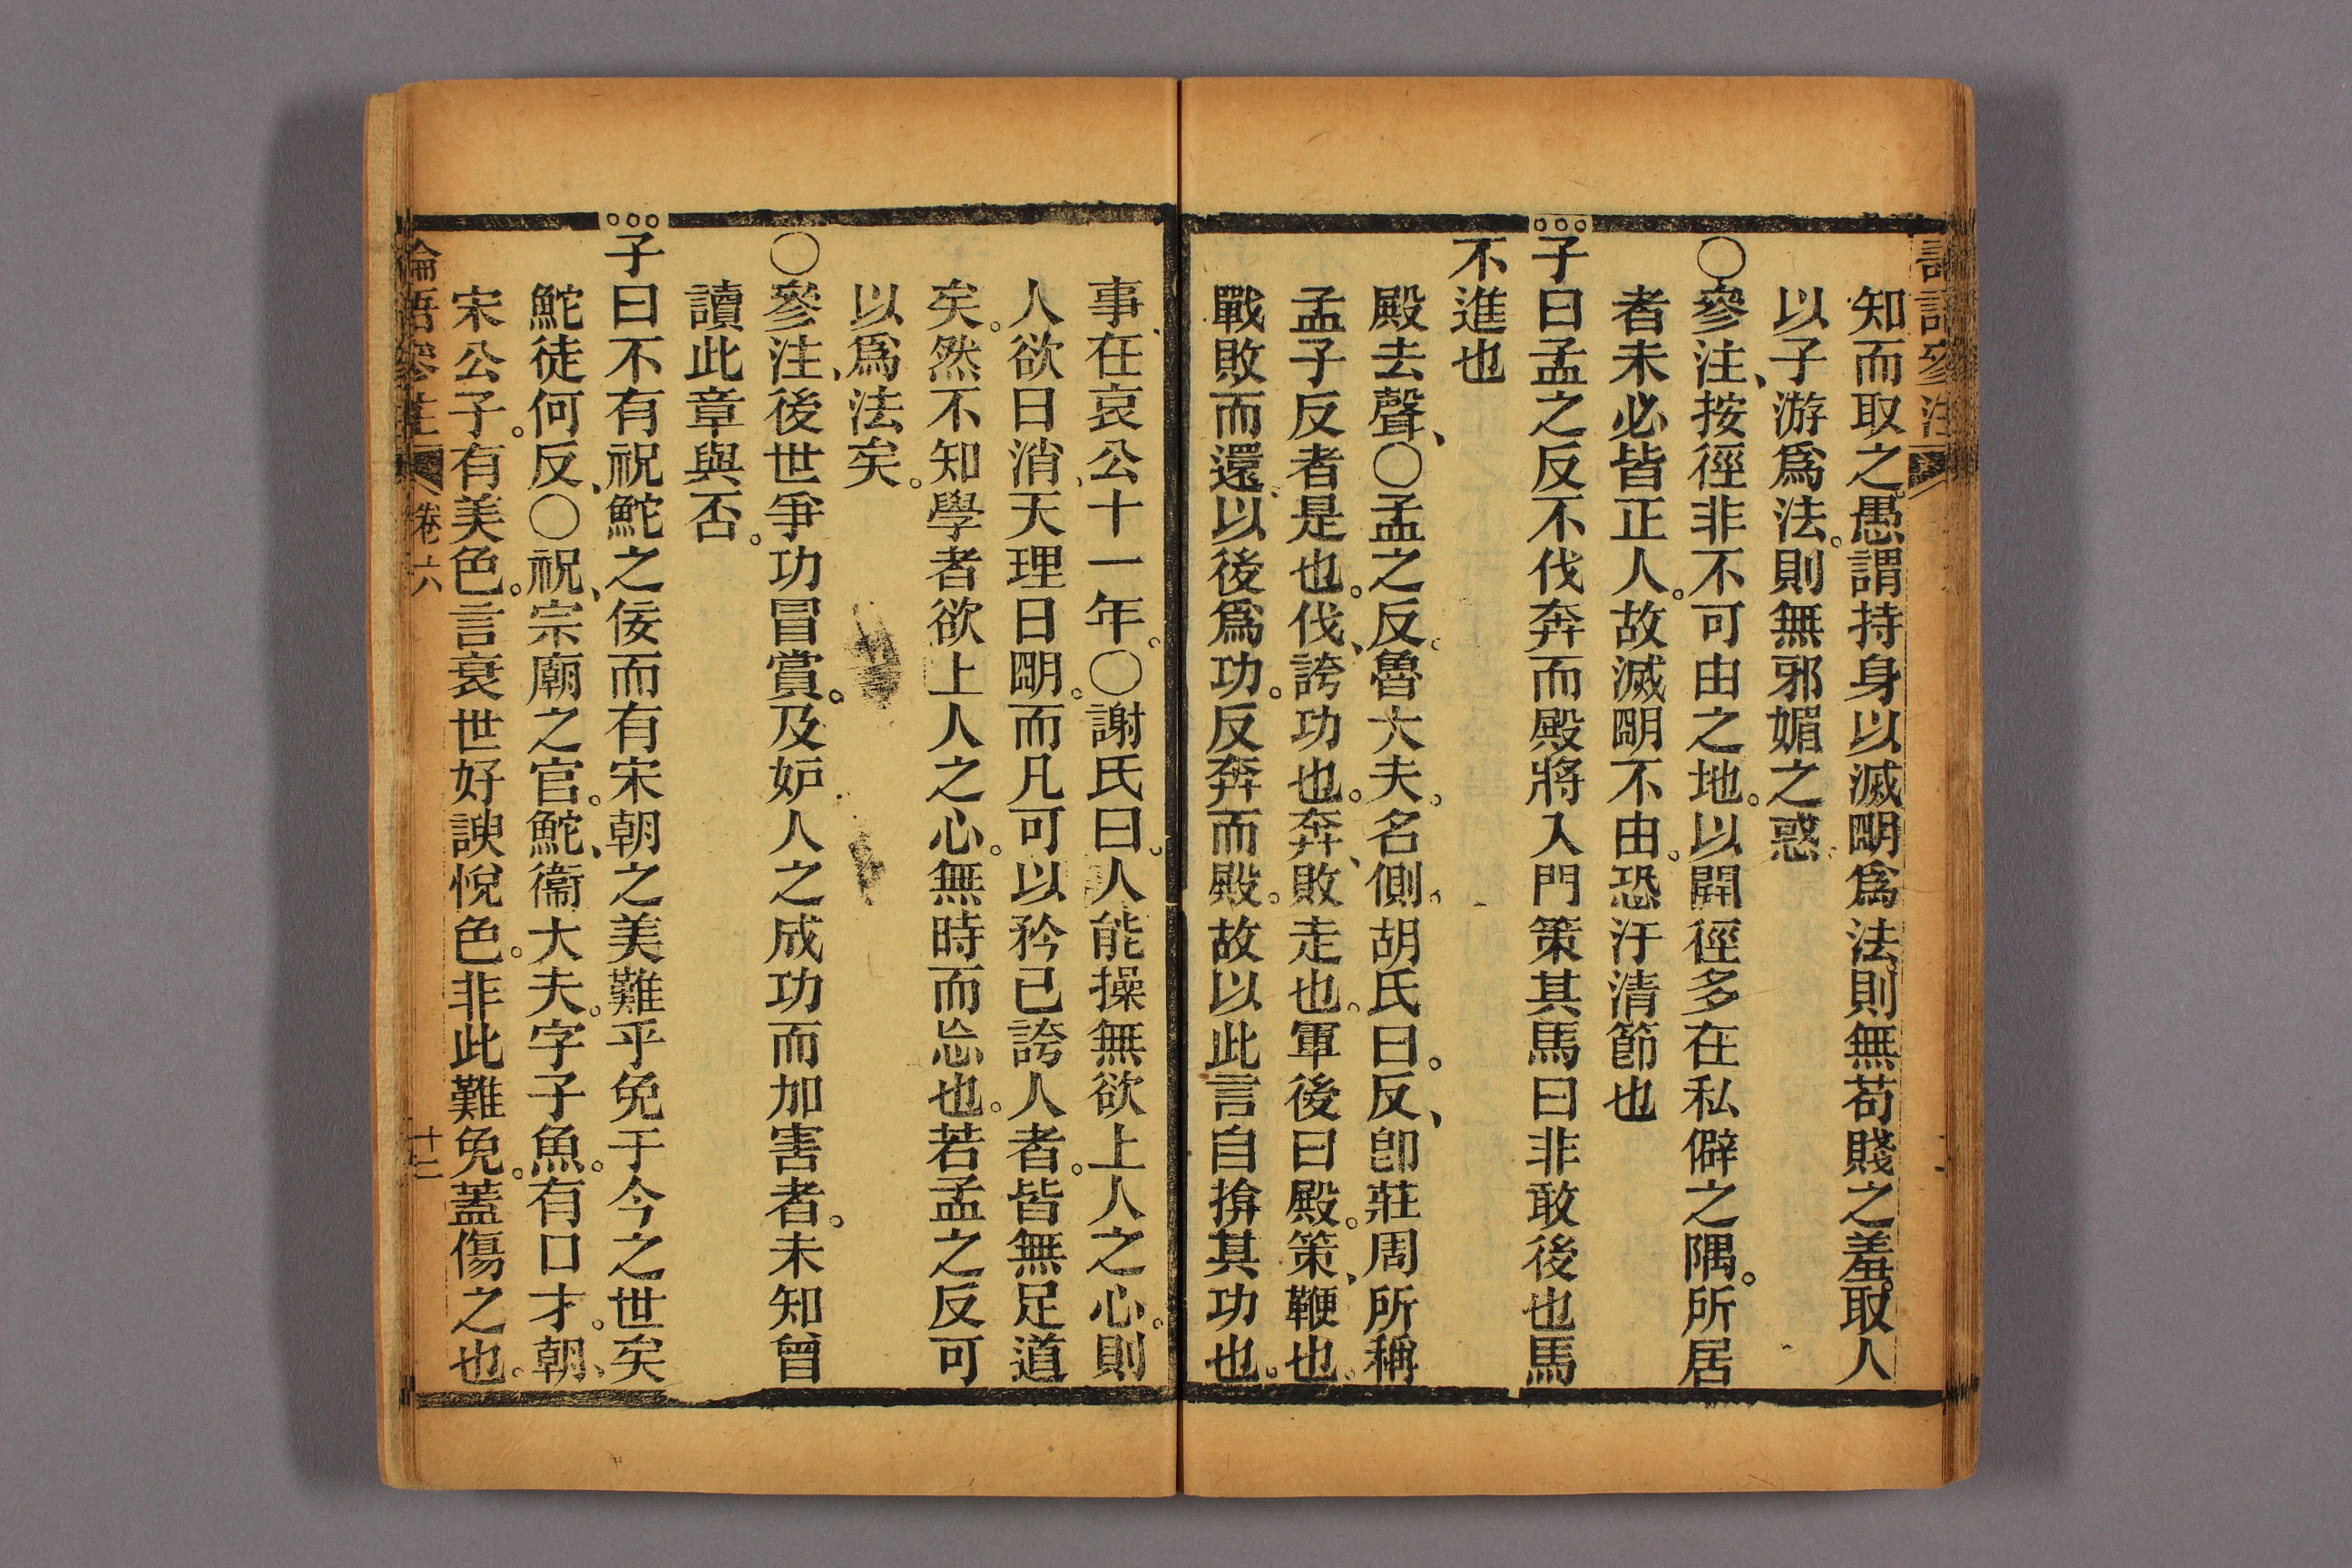 知而取之。愚謂持身以滅明爲法、則無苟賤之羞。取人
以子游爲法。則無邪媚之惑。
○參注、按徑非不可由之地。以闢徑多在私僻之隅。所居
者未必皆正人。故滅明不由。恐汙清節也
子曰孟之反不伐奔而殿將入門策其馬曰非敢後也馬
不進也
殿去聲、○孟之反。魯大夫。名側。胡氏曰。反、卽莊周所稱
孟子反者是也。伐、誇功也。奔、敗走也。軍後曰殿。策、鞭也。
戰敗而還。以後爲功。反奔而殿。故以此言自揜其功也。
事、在哀公十一年。○謝氏曰。人能操無欲上人之心。則
人欲日消、天理日明。而凡可以矜己誇人者。皆無足道
矣。然不知學者欲上人之心。無時而忘也。若孟之反可
以爲法矣。
○參注、後世爭功冒賞。及妒人之成功而加害者。未知曾
讀此章與否。
子曰不有祝鮀之佞而有宋朝之美難乎免于今之世矣
鮀徒何反、○祝、宗廟之官。鮀、衞大夫。字子魚。有口才。朝、
宋公子。有美色。言衰世好諛悅色。非此難免。蓋傷之也。
論語參注 卷六 十二